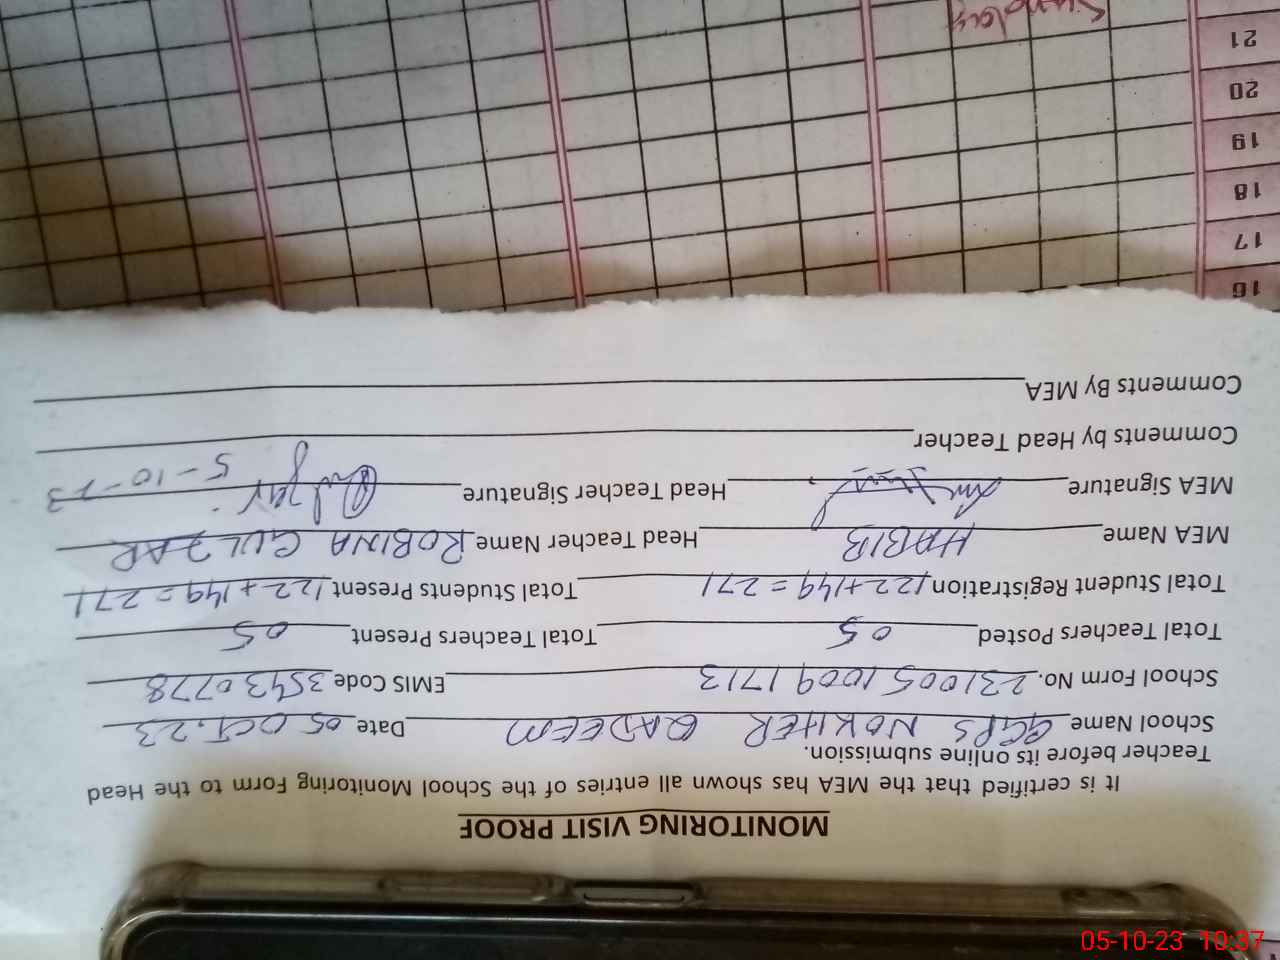 MONITORING VISIT PROOF
It is certified that the MEA has shown all entries of the School Monitoring Form to the Head
Teacher before its online submission.
School Name GGPS NOKHER QADEEM Date 05 OCT. 23
School Form No. 2310051009 1713 EMIS Code 35430778
Total Teachers Posted 05 Total Teachers Present 05
Total Student Registration 122+149=271 Total Students Present 122+149=271
MEA Name HABIB Head Teacher Name ROBINA GULZAR
MEA Signature Head Teacher Signature 5-10-23
Comments by Head Teacher
Comments By MEA
16
17
18
19
20
21
Sunday
05-10-23 10:37